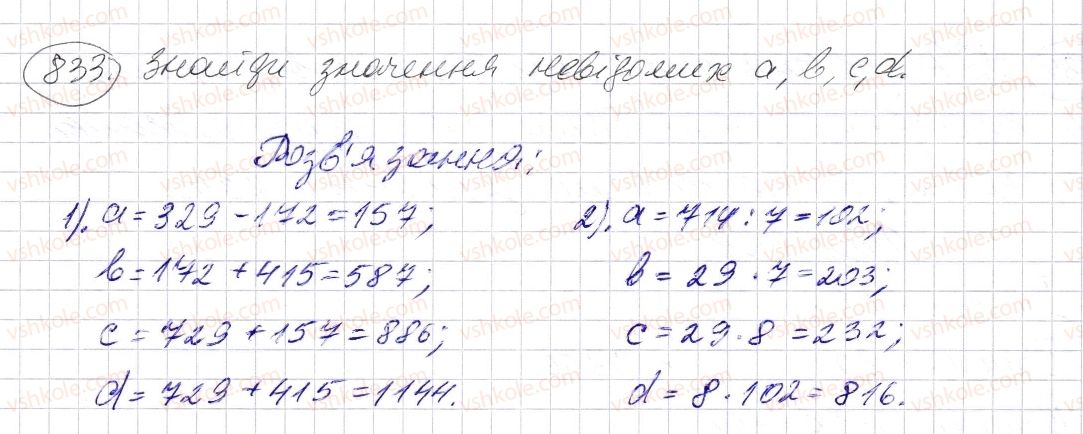 833. Знайди значення невідомих a, b, c, d.
Розв'язання:
1). a = 329 - 172 = 157;
b = 172 + 415 = 587;
c = 729 + 157 = 886;
d = 729 + 415 = 1144.
2). a = 714 : 7 = 102;
b = 29 · 7 = 203;
c = 29 · 8 = 232;
d = 8 · 102 = 816.
vshkole.com